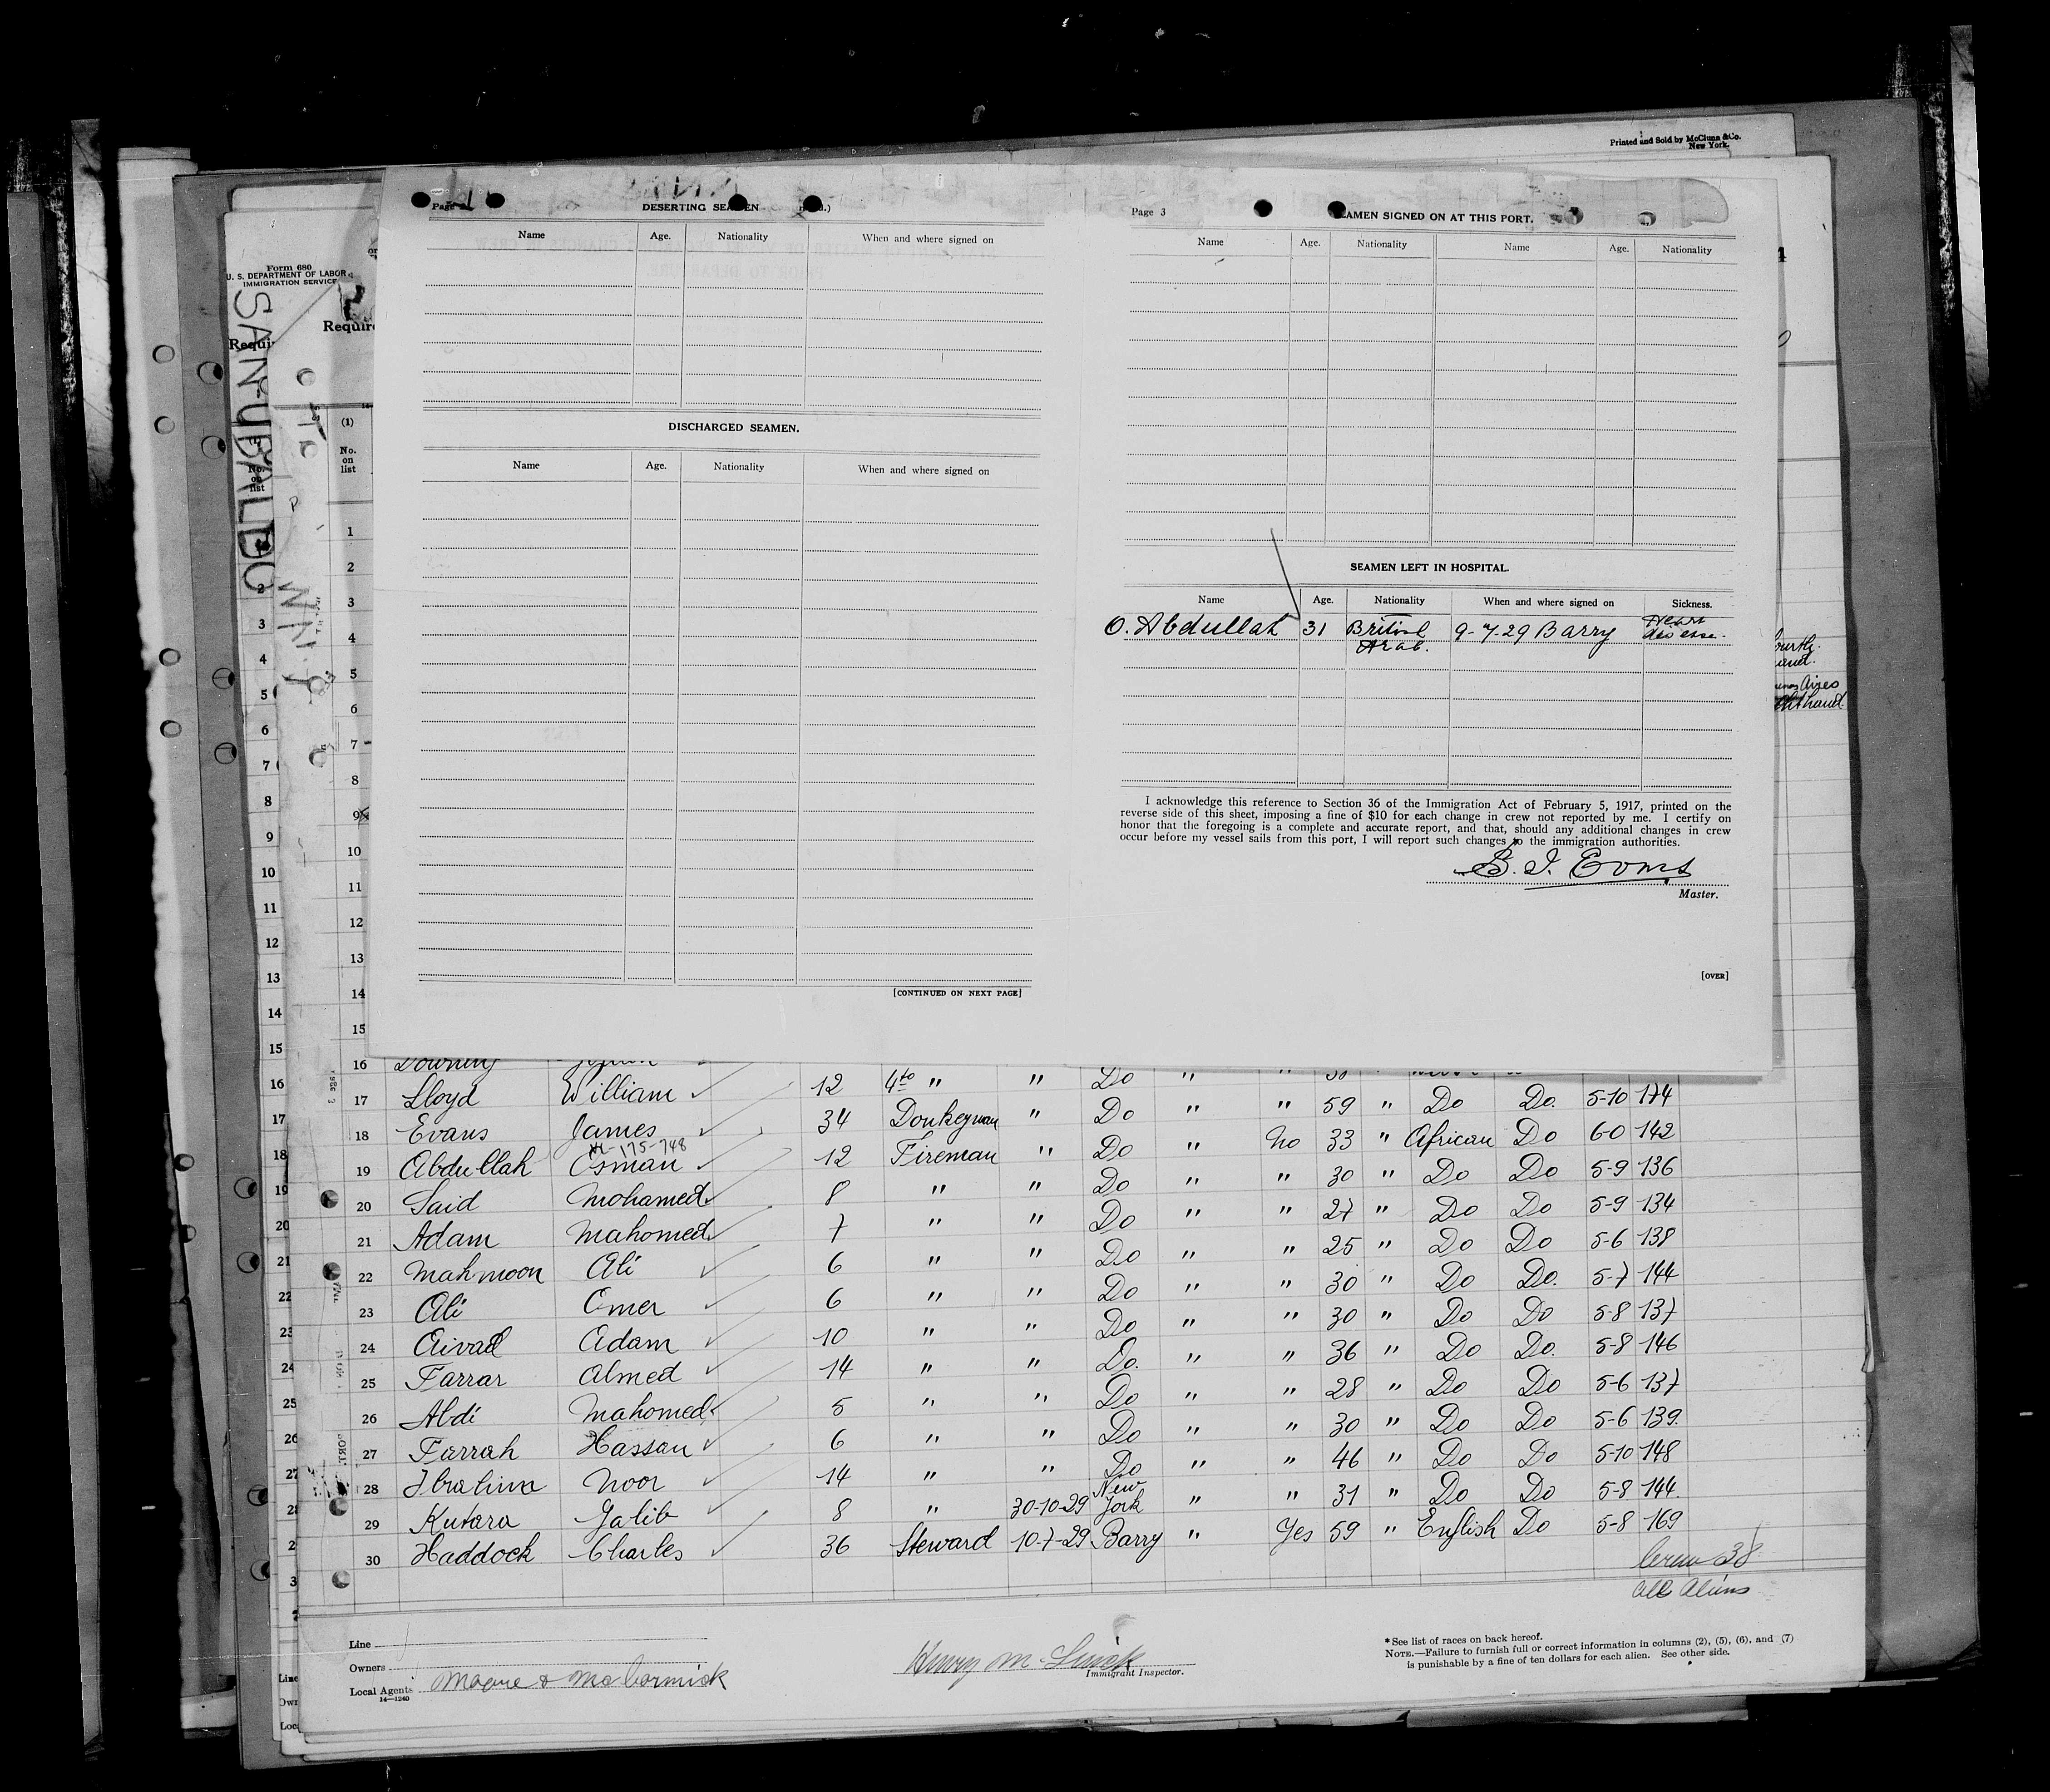 Printed and Sold by McClung & Co.
New York.
Form 680
U. S. DEPARTMENT OF LABOR
IMMIGRATION SERVICE
SAN UBALDO
(1)
No.
on
list
Page
DESERTING SEAMEN
Name Age. Nationality When and where signed on
DISCHARGED SEAMEN.
Name Age. Nationality When and where signed on
[CONTINUED ON NEXT PAGE]
Page 3
SEAMEN SIGNED ON AT THIS PORT.
Name Age. Nationality Name Age. Nationality
SEAMEN LEFT IN HOSPITAL.
Name Age. Nationality When and where signed on Sickness.
O. Abdullah 31 British Arab. 9-7-29 Barry Heart
I acknowledge this reference to Section 36 of the Immigration Act of February 5, 1917, printed on the
reverse side of this sheet, imposing a fine of $10 for each change in crew not reported by me. I certify on
honor that the foregoing is a complete and accurate report, and that, should any additional changes in crew
occur before my vessel sails from this port, I will report such changes to the immigration authorities.
Evans
Master.
[OVER]
17 Lloyd William 12 4th " " Do " " 59 " Do Do. 5-10 174
18 Evans James 34 Donkeyman " Do " No 33 " African Do 6-0 142
175-748
19 Abdullah Osman 12 Fireman " Do " " 30 " Do Do 5-9 136
20 Said Mohamed 8 " " Do " " 27 " Do Do 5-9 134
21 Adam Mahomed 7 " " Do " " 25 " Do Do 5-6 138
22 Mahmoon Ali 6 " " Do " " 30 " Do Do. 5-7 144
23 Ali Omer 6 " " Do " " 30 " Do Do 5-8 137
24 Aivad Adam 10 " " Do " " 36 " Do Do. 5-8 146
25 Farrar Ahmed 14 " " Do. " " 28 " Do Do 5-6 137
26 Abdi Mahomed 5 " " Do " " 30 " Do Do 5-6 139.
27 Farrah Hassan 6 " " Do " " 46 " Do Do 5-10 148
28 Ibrahim Noor 14 " " Do " " 31 " Do Do 5-8 144.
29 Kutara Galib 8 " 30-10-29 New York "
30 Haddock Charles 36 Steward 10-7-29 Barry " Yes 59 " English Do 5-8 169
Crew 38
All Aliens
Line
Owners
Local Agents Moore & McCormick
14—1240
Immigrant Inspector.
* See list of races on back hereof.
NOTE.—Failure to furnish full or correct information in columns (2), (5), (6), and (7)
is punishable by a fine of ten dollars for each alien. See other side.